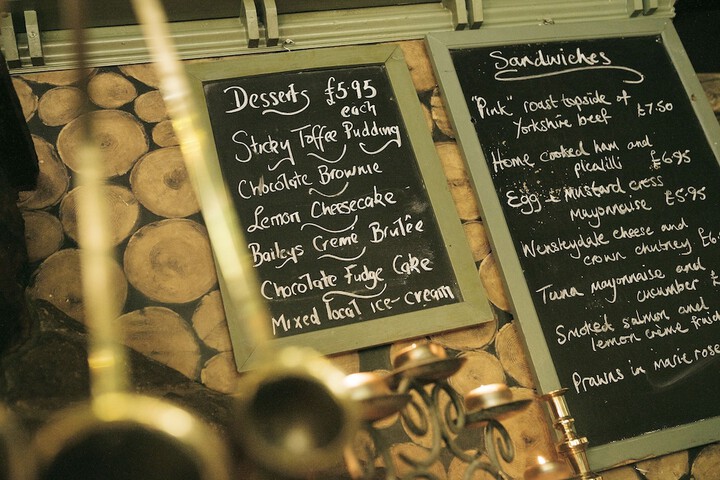 Desserts £5.95
each
Sticky Toffee Pudding
Chocolate Brownie
Lemon Cheesecake
Baileys Creme Brulée
Chocolate Fudge Cake
Mixed local ice-cream
Sandwiches
"Pink" roast topside of
Yorkshire beef £7.50
Home cooked ham and
picalilli £6.95
Egg + mustard cress
mayonnaise £5.95
Wensleydale cheese and
crown chutney £6.
Tuna mayonnaise and
cucumber £
Smoked salmon and
lemon crème
Prawns in marie rose